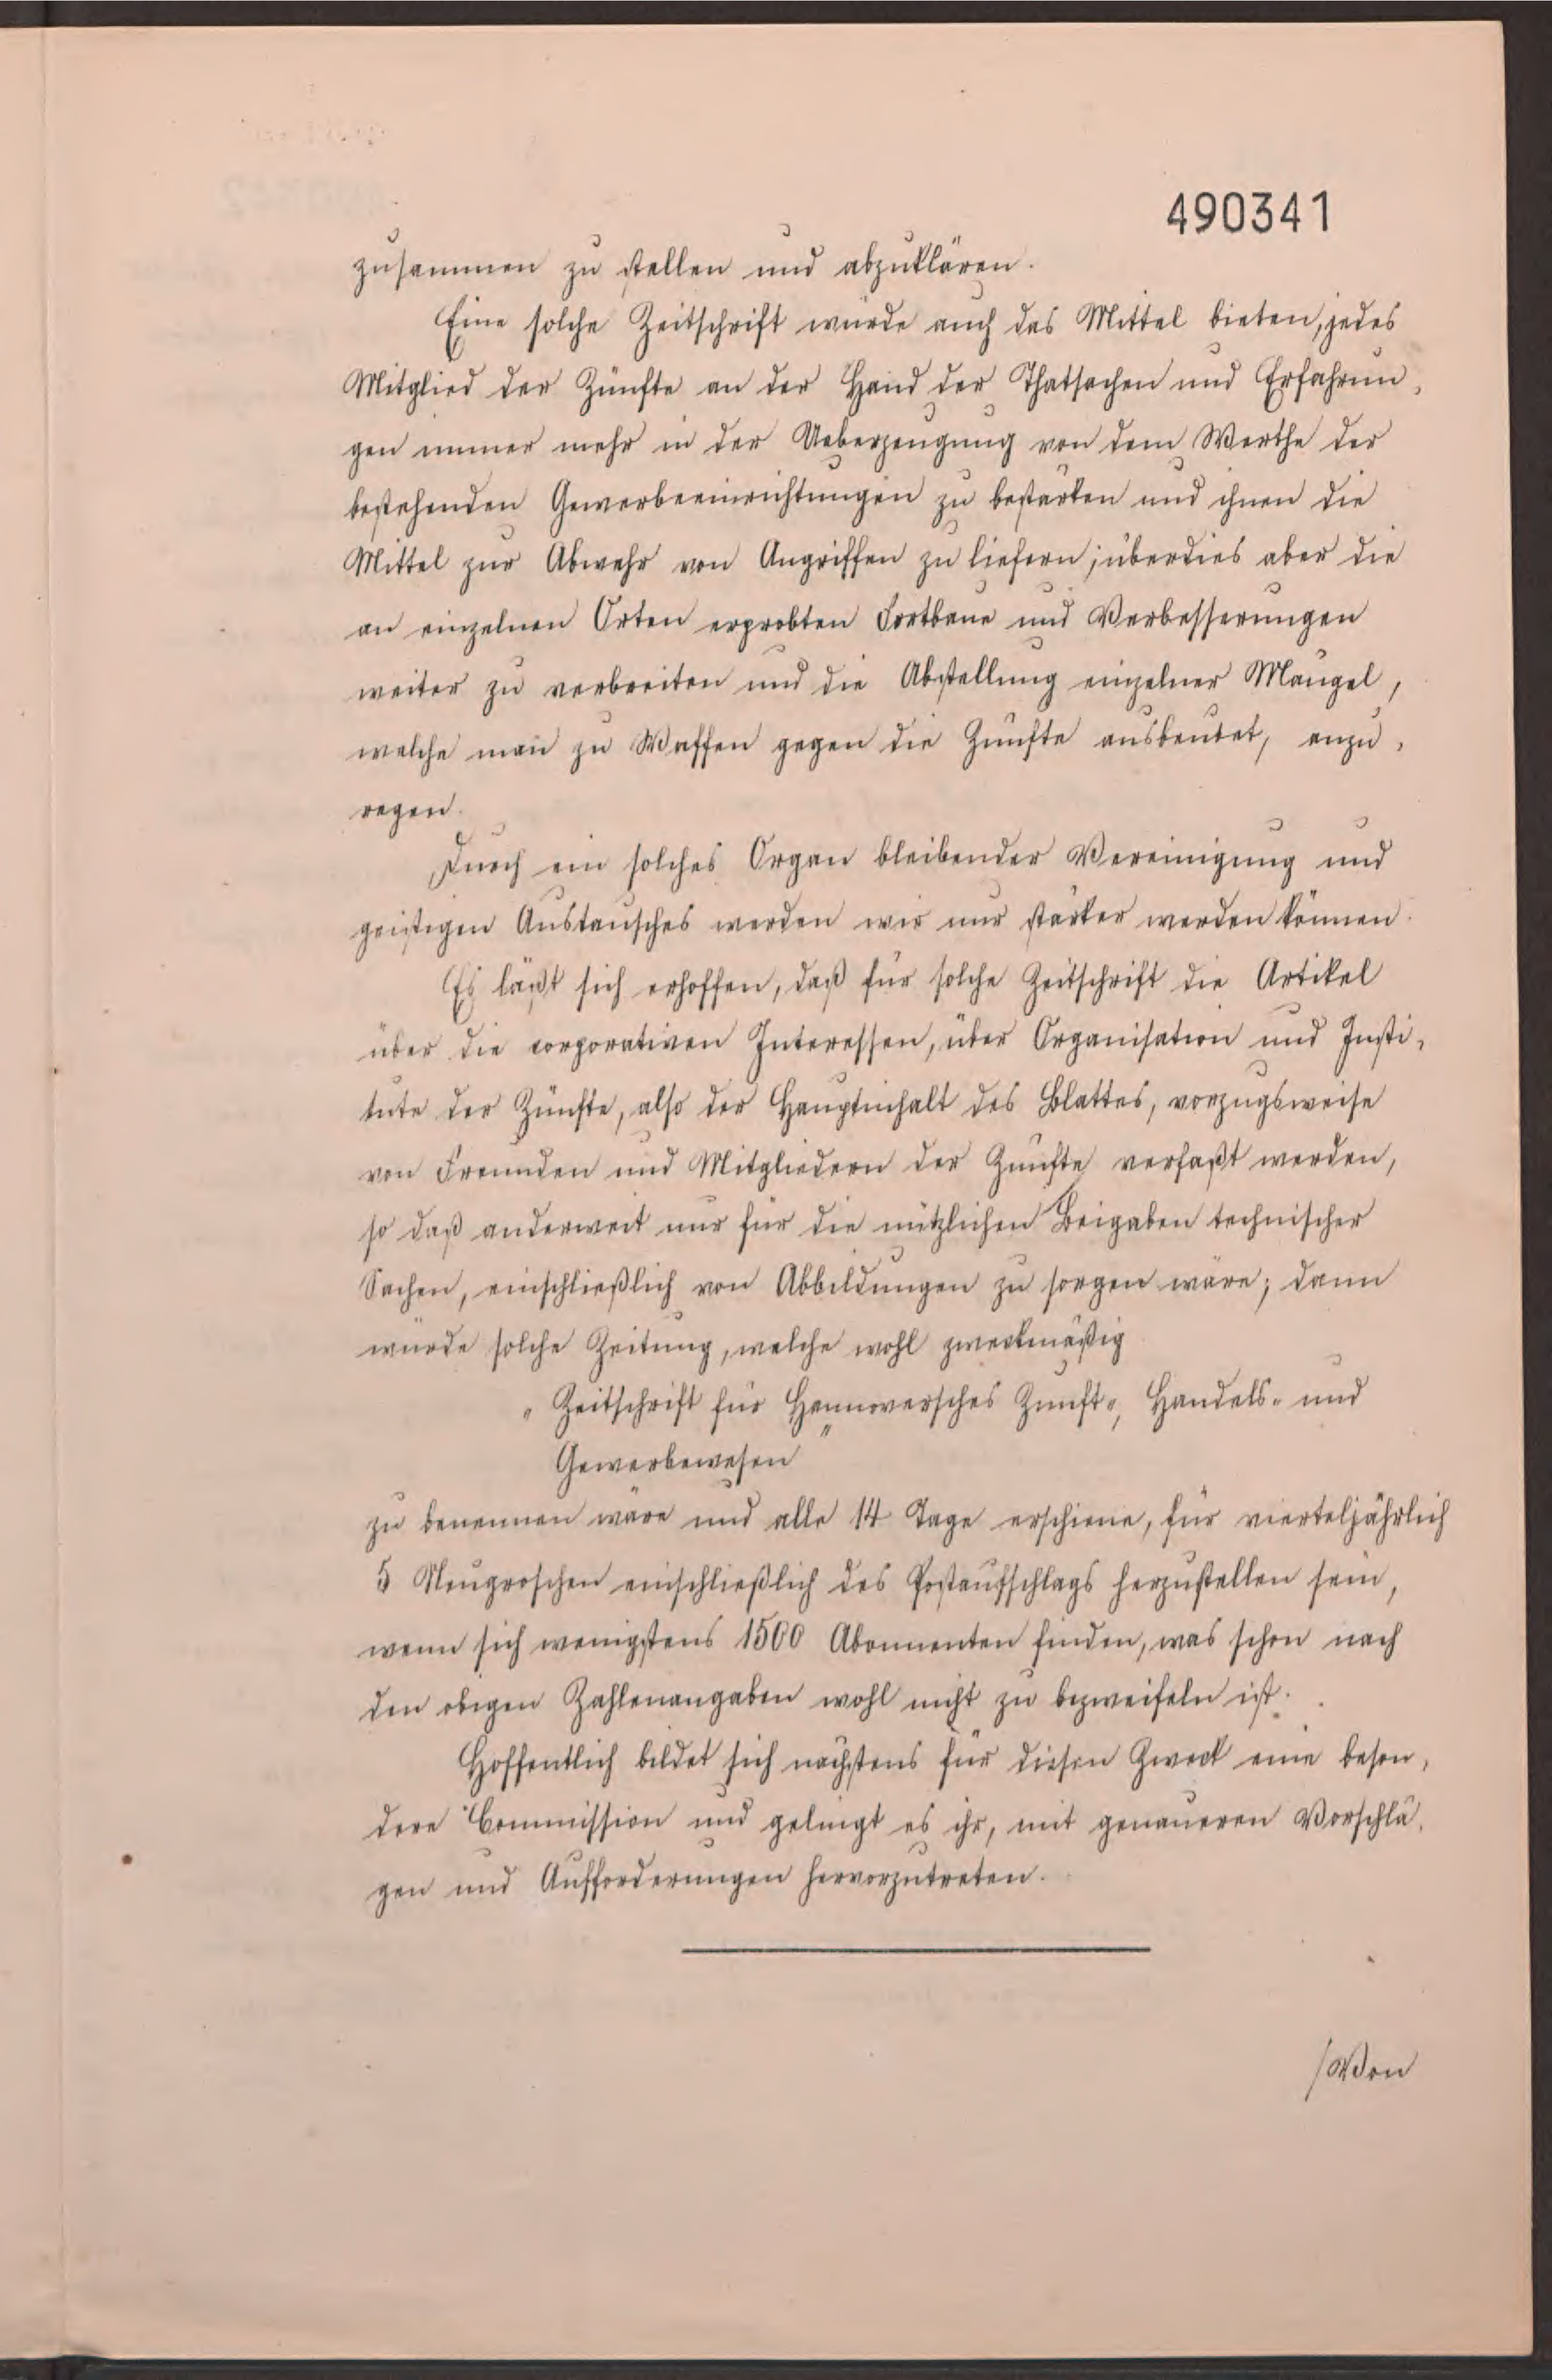 490341
zusammen zu stellen und abzuklären.
Eine solche Zeitschrift würde auch das Mittel bieten, jedes
Mitglied der Zünfte an der Hand der Thatsachen und Erfahrun-
gen immer mehr in der Ueberzeugung von dem Werthe der
bestehenden Gewerbeeinrichtungen zu bestärken und ihnen die
Mittel zur Abwehr von Angriffen zu liefern; überdies aber die
an einzelnen Orten erprobten Fortbaue und Verbesserungen
weiter zu verbreiten und die Abstellung einzelner Mängel,
welche man zu Waffen gegen die Zünfte ausbeutet, anzu-
regen.
Durch ein solches Organ bleibender Vereinigung und
geistigen Austausches werden wir nur stärker werden können.
Es läßt sich erhoffen, daß für solche Zeitschrift die Artikel
über die corporativen Interessen, über Organisation und Insti-
tute der Zünfte, also der Hauptinhalt des Blattes, vorzugsweise
von Freunden und Mitgliedern der Zünfte verfaßt werden,
so daß anderweit nur für die nützlichen Beigaben technischer
Sachen, einschließlich von Abbildungen zu sorgen wäre; dann
würde solche Zeitung, welche wohl zweckmäßig
"Zeitschrift für Hannoversches Zunft-, Handels- und
Gewerbewesen"
zu benennen wäre und alle 14 Tage erschiene, für vierteljährlich
5 Neugroschen einschließlich des Postaufschlags herzustellen sein,
wenn sich wenigstens 1500 Abonnenten finden, was schon nach
den obigen Zahlenangaben wohl nicht zu bezweifeln ist.
Hoffentlich bildet sich nächstens für diesen Zweck eine beson-
dere Commission und gelingt es ihr, mit genaueren Vorschlä-
gen und Aufforderungen hervorzutreten.
/Von